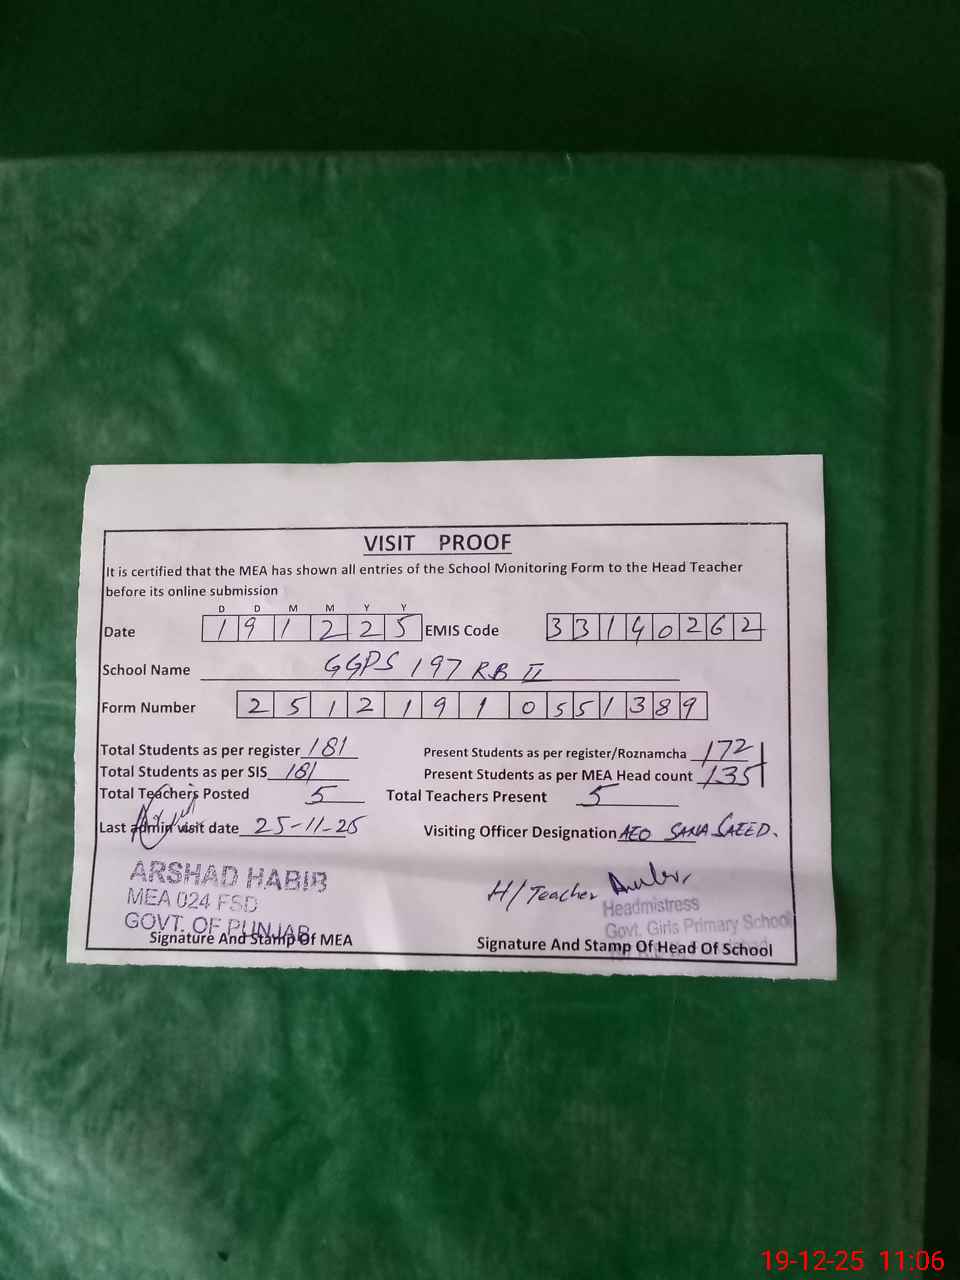 VISIT PROOF
It is certified that the MEA has shown all entries of the School Monitoring Form to the Head Teacher
before its online submission
D D M M Y Y
Date 1 9 1 2 2 5 EMIS Code 3 3 1 4 0 2 6 2
School Name GGPS 197 RB II
Form Number 2 5 1 2 1 9 1 0 5 5 1 3 8 9
Total Students as per register 181 Present Students as per register/Roznamcha 172
Total Students as per SIS 181 Present Students as per MEA Head count 135
Total Teachers Posted 5 Total Teachers Present 5
Last admin visit date 25-11-25 Visiting Officer Designation AEO SANA SAEED.
ARSHAD HABIB
MEA 024 FSD
GOVT. OF PUNJAB
Signature And Stamp Of MEA
H/Teacher
Headmistress
Govt. Girls Primary School
Signature And Stamp Of Head Of School
19-12-25 11:06